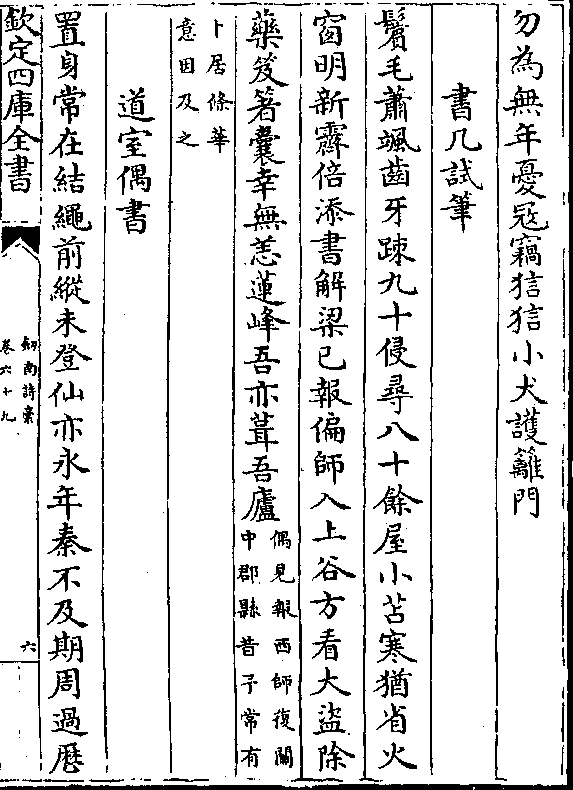 勿為無年憂冦竊狺狺小犬護籬門
書几試筆
鬢毛蕭颯齒牙踈九十侵尋八十餘屋小苫寒猶省火
窗明新霽倍添書解梁已報偏師入上谷方看大盜除
藥笈箸囊幸無恙蓮峰吾亦葺吾廬
偶見報西師復關
中郡縣昔子常有
卜居條華
意因及之
道室偶書
置身常在結繩前縱未登仙亦永年秦不及期周過厯
欽定四庫全書
劒南詩稾
卷六十九
六